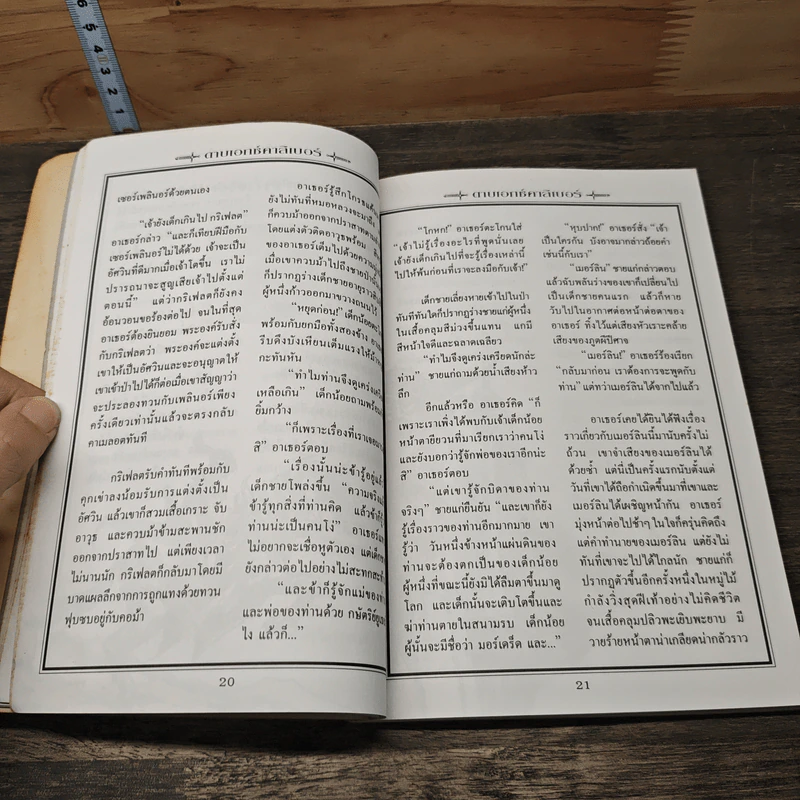 6
5
4
3
2
1
ดาบเอกซ์คาลิเบอร์
เซอร์เพลินอร์ด้วยตนเอง
“เจ้ายังเด็กเกินไป กริเฟลต”
อาเธอร์กล่าว “และก็เทียบฝีมือกับ
เซอร์เพลินอร์ไม่ได้ด้วย เจ้าจะเป็น
อัศวินที่ดีมากเมื่อเจ้าโตขึ้น เราไม่
ปรารถนาจะสูญเสียเจ้าไปตั้งแต่
ตอนนี้” แต่ว่ากริเฟลตก็ยังคง
อ้อนวอนขอร้องต่อไป จนในที่สุด
อาเธอร์ต้องยินยอม พระองค์รับสั่ง
กับกริเฟลตว่า พระองค์จะแต่งตั้ง
เขาให้เป็นอัศวินและจะอนุญาตให้
เขาเข้าป่าไปได้ก็ต่อเมื่อเขาสัญญาว่า
จะประลองทวนกับเพลินอร์เพียง
ครั้งเดียวเท่านั้นแล้วจะตรงกลับ
คาเมลอตทันที
กริเฟลตรับคำทันทีพร้อมกับ
คุกเข่าลงน้อมรับการแต่งตั้งเป็น
อัศวิน แล้วเขาก็สวมเสื้อเกราะ จับ
อาวุธ และควบม้าข้ามสะพานชัก
ออกจากปราสาทไป แต่เพียงเวลา
ไม่นานนัก กริเฟลตก็กลับมาโดยมี
บาดแผลลึกจากการถูกแทงด้วยทวน
ฟุบซบอยู่กับคอม้า
อาเธอร์รู้สึกโกรธ
ยังไม่ทันที่หมอหลวงจะมาถึง
ก็ควบม้าออกจากปราสาท
โดยแต่งตัวติดอาวุธพร้อม
ของอาเธอร์เต็มไปด้วย
เมื่อเขาควบม้าไปถึงชายป่า
ก็ปรากฏร่างเด็กชายอายุราว
ผู้หนึ่งก้าวออกมาขวางถนนไว้
“หยุดก่อน!” เด็กน้อย
พร้อมกับยกมือทั้งสองข้าง
รีบดึงบังเหียนเต็มแรงให้ม้า
กะทันหัน
“ทำไมท่านจึงดูเคร่ง
เหลือเกิน” เด็กน้อยถามพร้อม
ยิ้มกว้าง
“ก็เพราะเรื่องที่เรา
สิ” อาเธอร์ตอบ
“เรื่องนั้นน่ะข้ารู้อยู่
เด็กชายโพล่งขึ้น “ความจริง
ข้ารู้ทุกสิ่งที่ท่านคิด แล้วข้าก็
ท่านน่ะเป็นคนโง่” อาเธอร์
ไม่อยากจะเชื่อหูตัวเอง แต่เด็ก
ยังกล่าวต่อไปอย่างไม่สะทกสะท้าน
“และข้าก็รู้จักแม่ของท่าน
และพ่อของท่านด้วย กษัตริย์
ไง แล้วก็...”
20
ดาบเอกซ์คาลิเบอร์
“โกหก!” อาเธอร์ตะโกนใส่
“เจ้าไม่รู้เรื่องอะไรที่พูดนั่นเลย
เจ้ายังเด็กเกินไปที่จะรู้เรื่องเหล่านี้
ไปให้พ้นก่อนที่เราจะลงมือกับเจ้า!”
เด็กชายเลี่ยงหายเข้าไปในป่า
ทันทีทันใดก็ปรากฏร่างชายแก่ผู้หนึ่ง
ในเสื้อคลุมสีม่วงขึ้นแทน แกมี
สีหน้าใจดีและฉลาดเฉลียว
“ทำไมจึงดูเคร่งเครียดนักล่ะ
ท่าน” ชายแก่ถามด้วยน้ำเสียงห้าว
ลึก
อีกแล้วหรือ อาเธอร์คิด “ก็
เพราะเราเพิ่งได้พบกับเจ้าเด็กน้อย
หน้าตาอียวนที่มาเรียกเราว่าคนโง่
และยังบอกว่ารู้จักพ่อของเราอีกน่ะ
สิ” อาเธอร์ตอบ
“แต่เขารู้จักบิดาของท่าน
จริงๆ” ชายแก่ยืนยัน “และเขาก็ยัง
รู้เรื่องราวของท่านอีกมากมาย เขา
รู้ว่า วันหนึ่งข้างหน้าแผ่นดินของ
ท่านจะต้องตกเป็นของเด็กน้อย
ผู้หนึ่งที่ขณะนี้ยังมิได้ลืมตาขึ้นมาดู
โลก และเด็กนั้นจะเติบโตขึ้นและ
ฆ่าท่านตายในสนามรบ เด็กน้อย
ผู้นั้นจะมีชื่อว่า มอร์เดร็ด และ...”
“หุบปาก!” อาเธอร์สั่ง “เจ้า
เป็นใครกัน บังอาจมากล่าวถ้อยคำ
เช่นนี้กับเรา”
“เมอร์ลิน” ชายแก่กล่าวตอบ
แล้วฉับพลันร่างของเขาก็เปลี่ยนไป
เป็นเด็กชายคนแรก แล้วก็หาย
วับไปในอากาศต่อหน้าต่อตาของ
อาเธอร์ ทิ้งไว้แต่เสียงหัวเราะคล้าย
เสียงของภูตผีปีศาจ
“เมอร์ลิน!” อาเธอร์ร้องเรียก
“กลับมาก่อน เราต้องการจะพูดกับ
ท่าน” แต่ทว่าเมอร์ลินได้จากไปแล้ว
อาเธอร์เคยได้ยินได้ฟังเรื่อง
ราวเกี่ยวกับเมอร์ลินนี้มานับครั้งไม่
ถ้วน เขาจำเสียงของเมอร์ลินได้
ด้วยซ้ำ แต่นี่เป็นครั้งแรกนับตั้งแต่
วันที่เขาได้ถือกำเนิดขึ้นมาที่เขาและ
เมอร์ลินได้เผชิญหน้ากัน อาเธอร์
มุ่งหน้าต่อไปช้าๆ ในใจก็ครุ่นคิดถึง
แต่คำทำนายของเมอร์ลิน แต่ยังไม่
ทันที่เขาจะไปได้ไกลนัก ชายแก่ก็
ปรากฏตัวขึ้นอีกครั้งหนึ่งในหมู่ไม้
กำลังวิ่งสุดฝีเท้าอย่างไม่คิดชีวิต
จนเสื้อคลุมปลิวพะเยิบพะยาบ มี
วายร้ายหน้าตาน่าเกลียดน่ากลัวราว
21